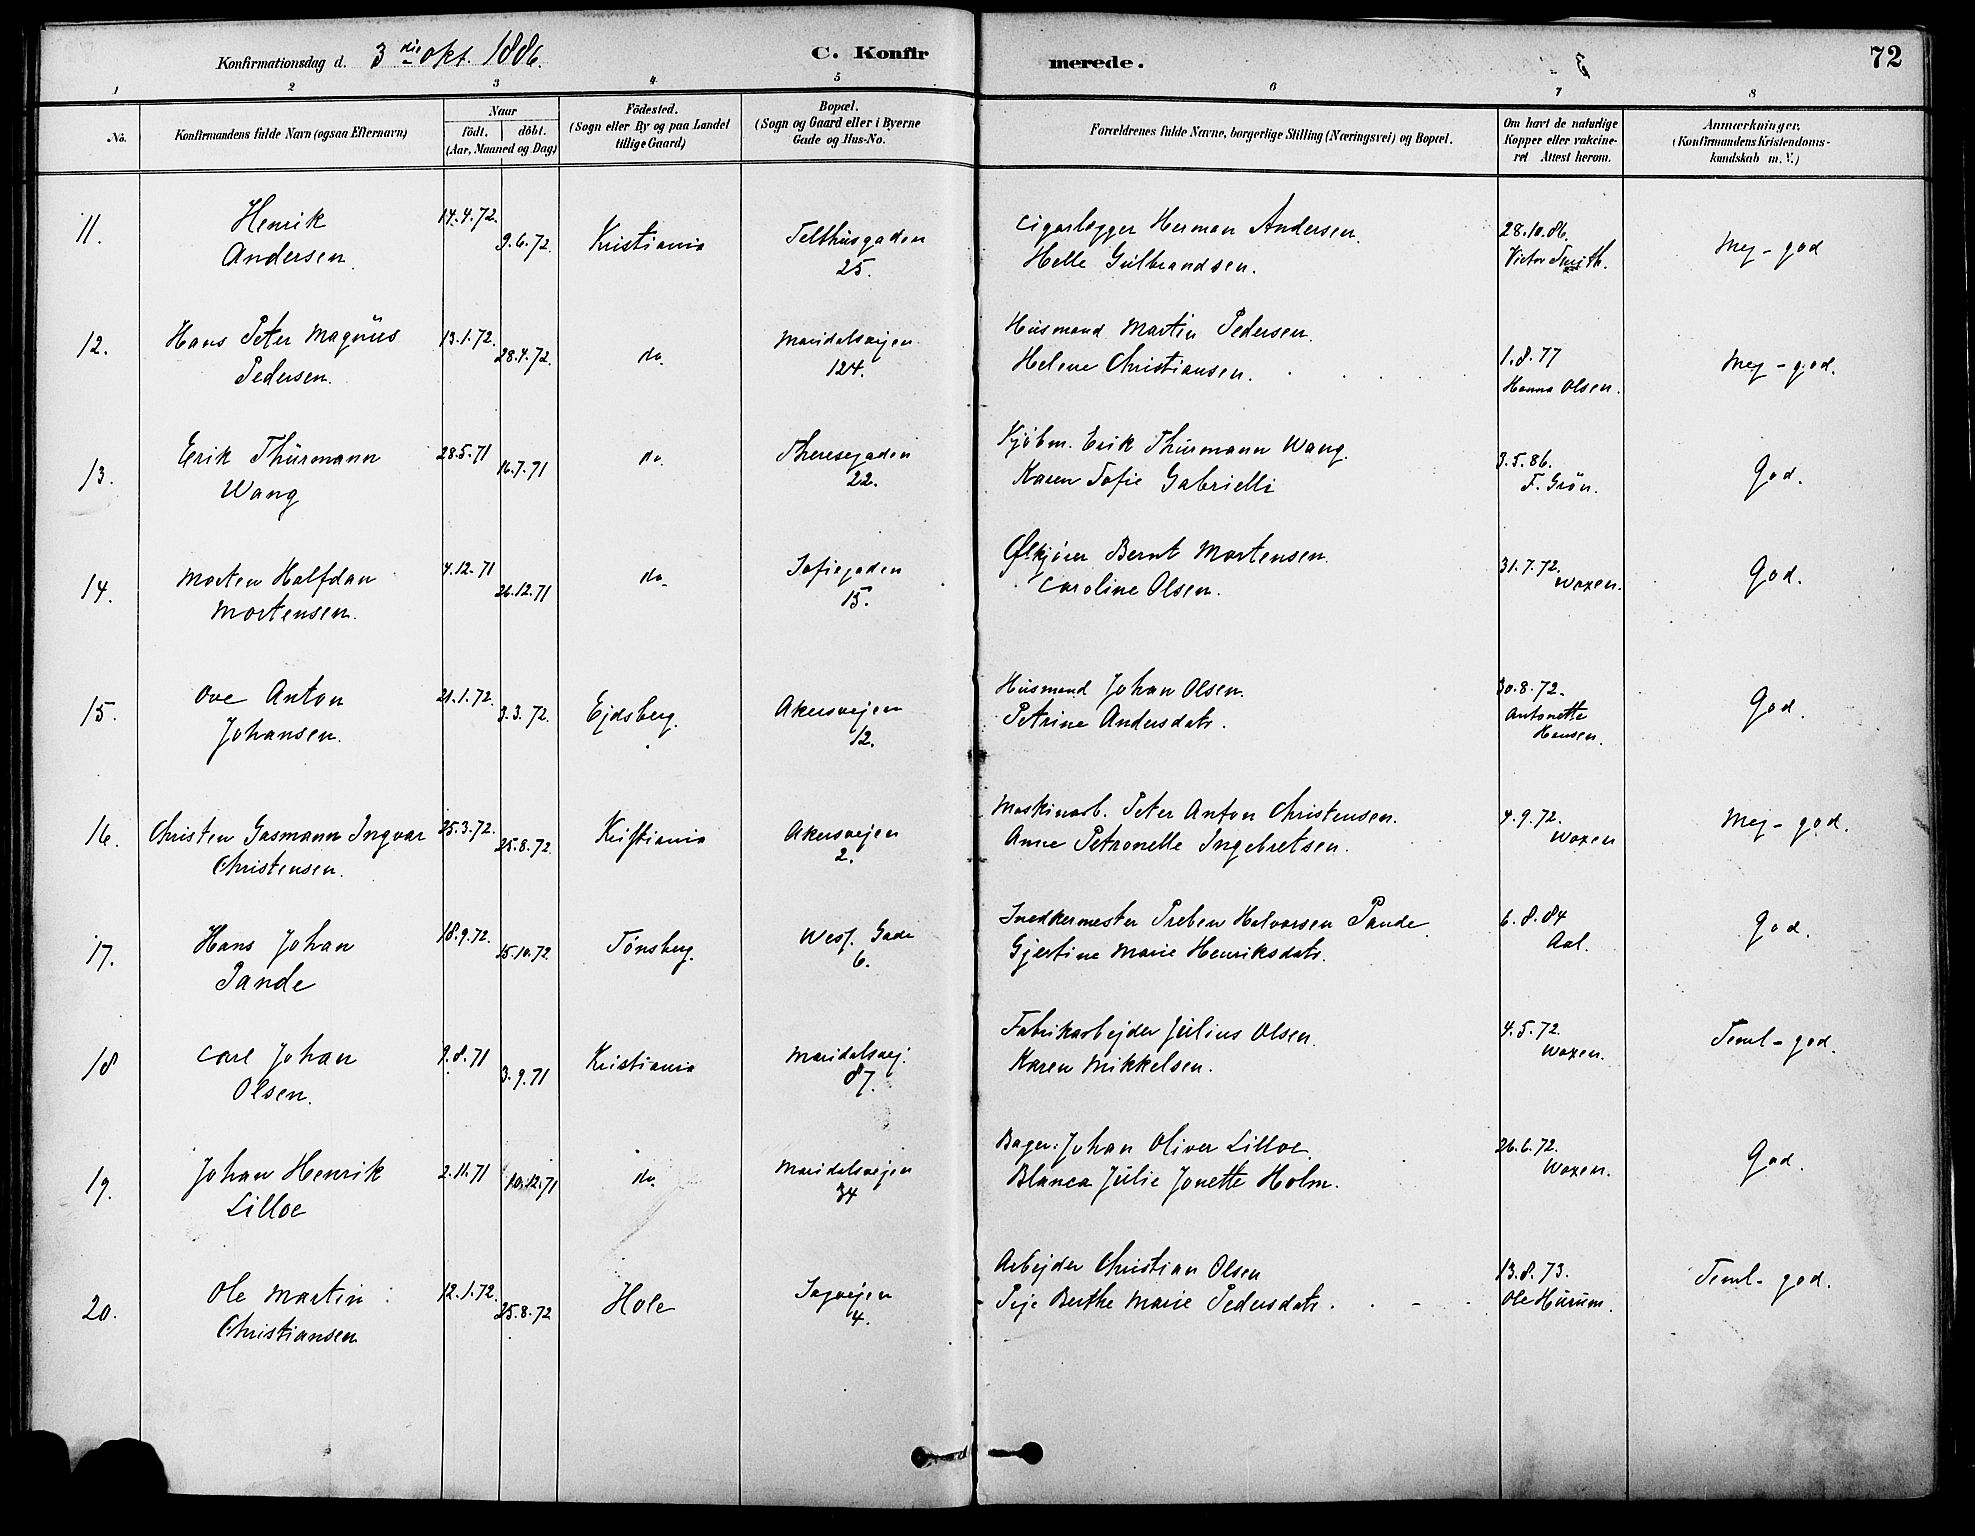 Konfirmationsdag d. 3die Okt. 1886.
C. Konfirmerede.
72
1 2 3 4 5 6 7 8
No.
Konfirmandens fulde Navn (ogsaa Efternavn)
Naar
födt. döbt.
(Aar, Maaned og Dag)
Födested.
(Sogn eller By og paa Landet
tillige Gaard)
Bopæl.
(Sogn og Gaard eller i Byerne
Gade og Hus-No.
Forældrenes fulde Navne, borgerlige Stilling (Næringsvei) og Bopæl.
Om havt de naturlige
Kopper eller vakcine-
ret Attest herom.
Anmærkninger.
(Konfirmandens Kristendoms-
kundskab m. V.)
11. Henrik 14.4.72. 9.6.72. Kristiania Telthusgaden Cigarlægger Herman Andersen. 28.10.86. Mej-god
Andersen. 25. Helle Gulbrandsen. Victor Smith.
12. Hans Peter Magnus 13.1.72. 28.4.72. do. Maridalsvejen Husmand Martin Pedersen. 1.8.77 Mej-god.
Pedersen. 124. Helene Christiansen. Hanna Olsen.
13. Erik Thurmann 28.5.71 16.7.71 do. Theresegaden Kjøbm. Erik Thurmann Wang. 3.5.86. God.
Wang 22. Karen Sofie Gabrielli F. Grön.
14. Morten Halfdan 4.12.71 26.12.71 do. Sofiegaden Ølkjører Bernt Mortensen. 31.7.72. God.
Mortensen. 15. Caroline Olsen. Woxen.
15. Ove Anton 21.1.72. 3.3.72. Ejdsberg. Akersvejen Husmand Johan Olsen. 30.8.72. God.
Johansen. 12. Petrine Andersdatr. Antonette
Hansen.
16. Christen Gasmann Ingvar 25.3.72. 25.8.72. Kristiania Akersvejen Maskinarb. Peter Anton Christensen. 4.9.72. Mej-god.
Christensen. 2. Anne Petronelle Ingebretsen. Woxen
17. Hans Johan 18.9.72. 15.10.72 Tønsberg. Wess. Gade Snedkermester Preben Halvorsen Sande 6.8.84 God.
Sande 6. Gjertine Marie Henriksdatr. Aal.
18 Carl Johan 9.8.71 3.9.71 Kristiania Maridalsvej. Fabrikarbejder Julius Olsen. 4.5.72. Teml-god.
Olsen. 87. Karen Mikkelsen. Woxen.
19. Johan Henrik 2.11.71 10.12.71 do. Maridalsvejen Bager. Johan Oliver Lilloe. 26.6.72. God.
Lilloe 34 Blanca Julie Jonette Holm. Woxen.
20. Ole Martin 12.1.72. 25.8.72 Hole Sagvejen Arbejder Christian Olsen 13.8.73. Teml-god.
Christiansen 4. Pige Berthe Marie Pedersdatr. Ole Hurum.